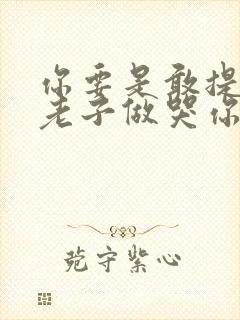 你要是敢提
老子做哭你
菀守紫心